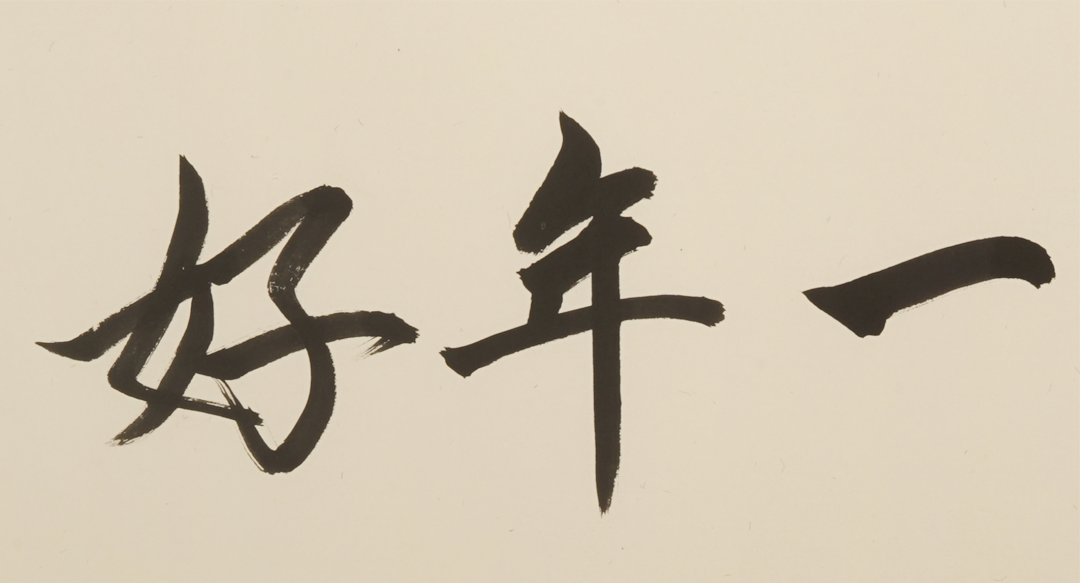 一年好